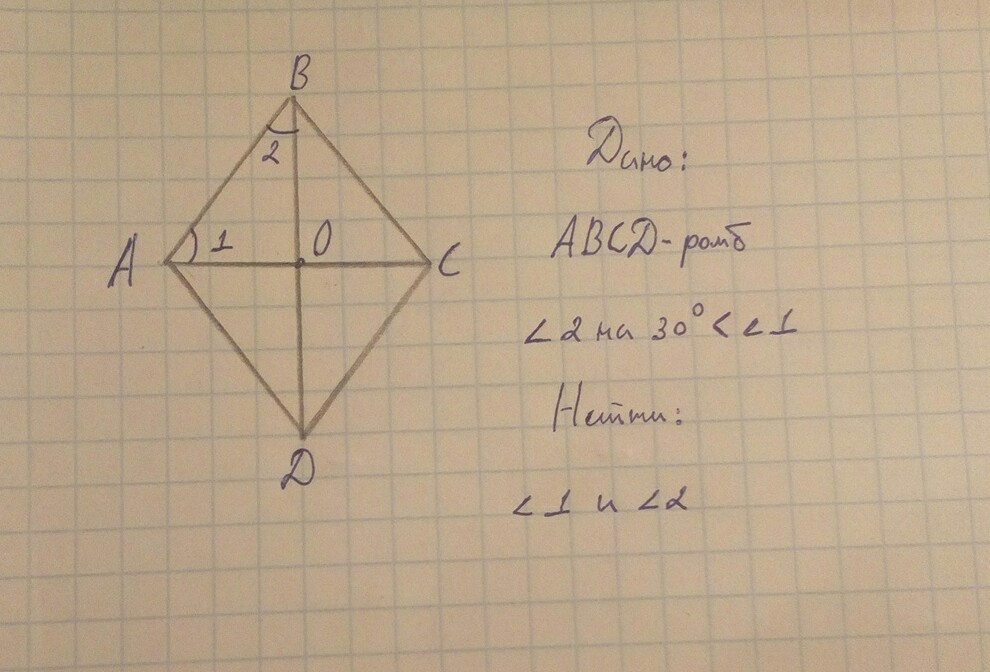 B
2
A 1 O C
D
Дано:
ABCD-ромб
<2 на 30° < <1
Найти:
<1 и <2